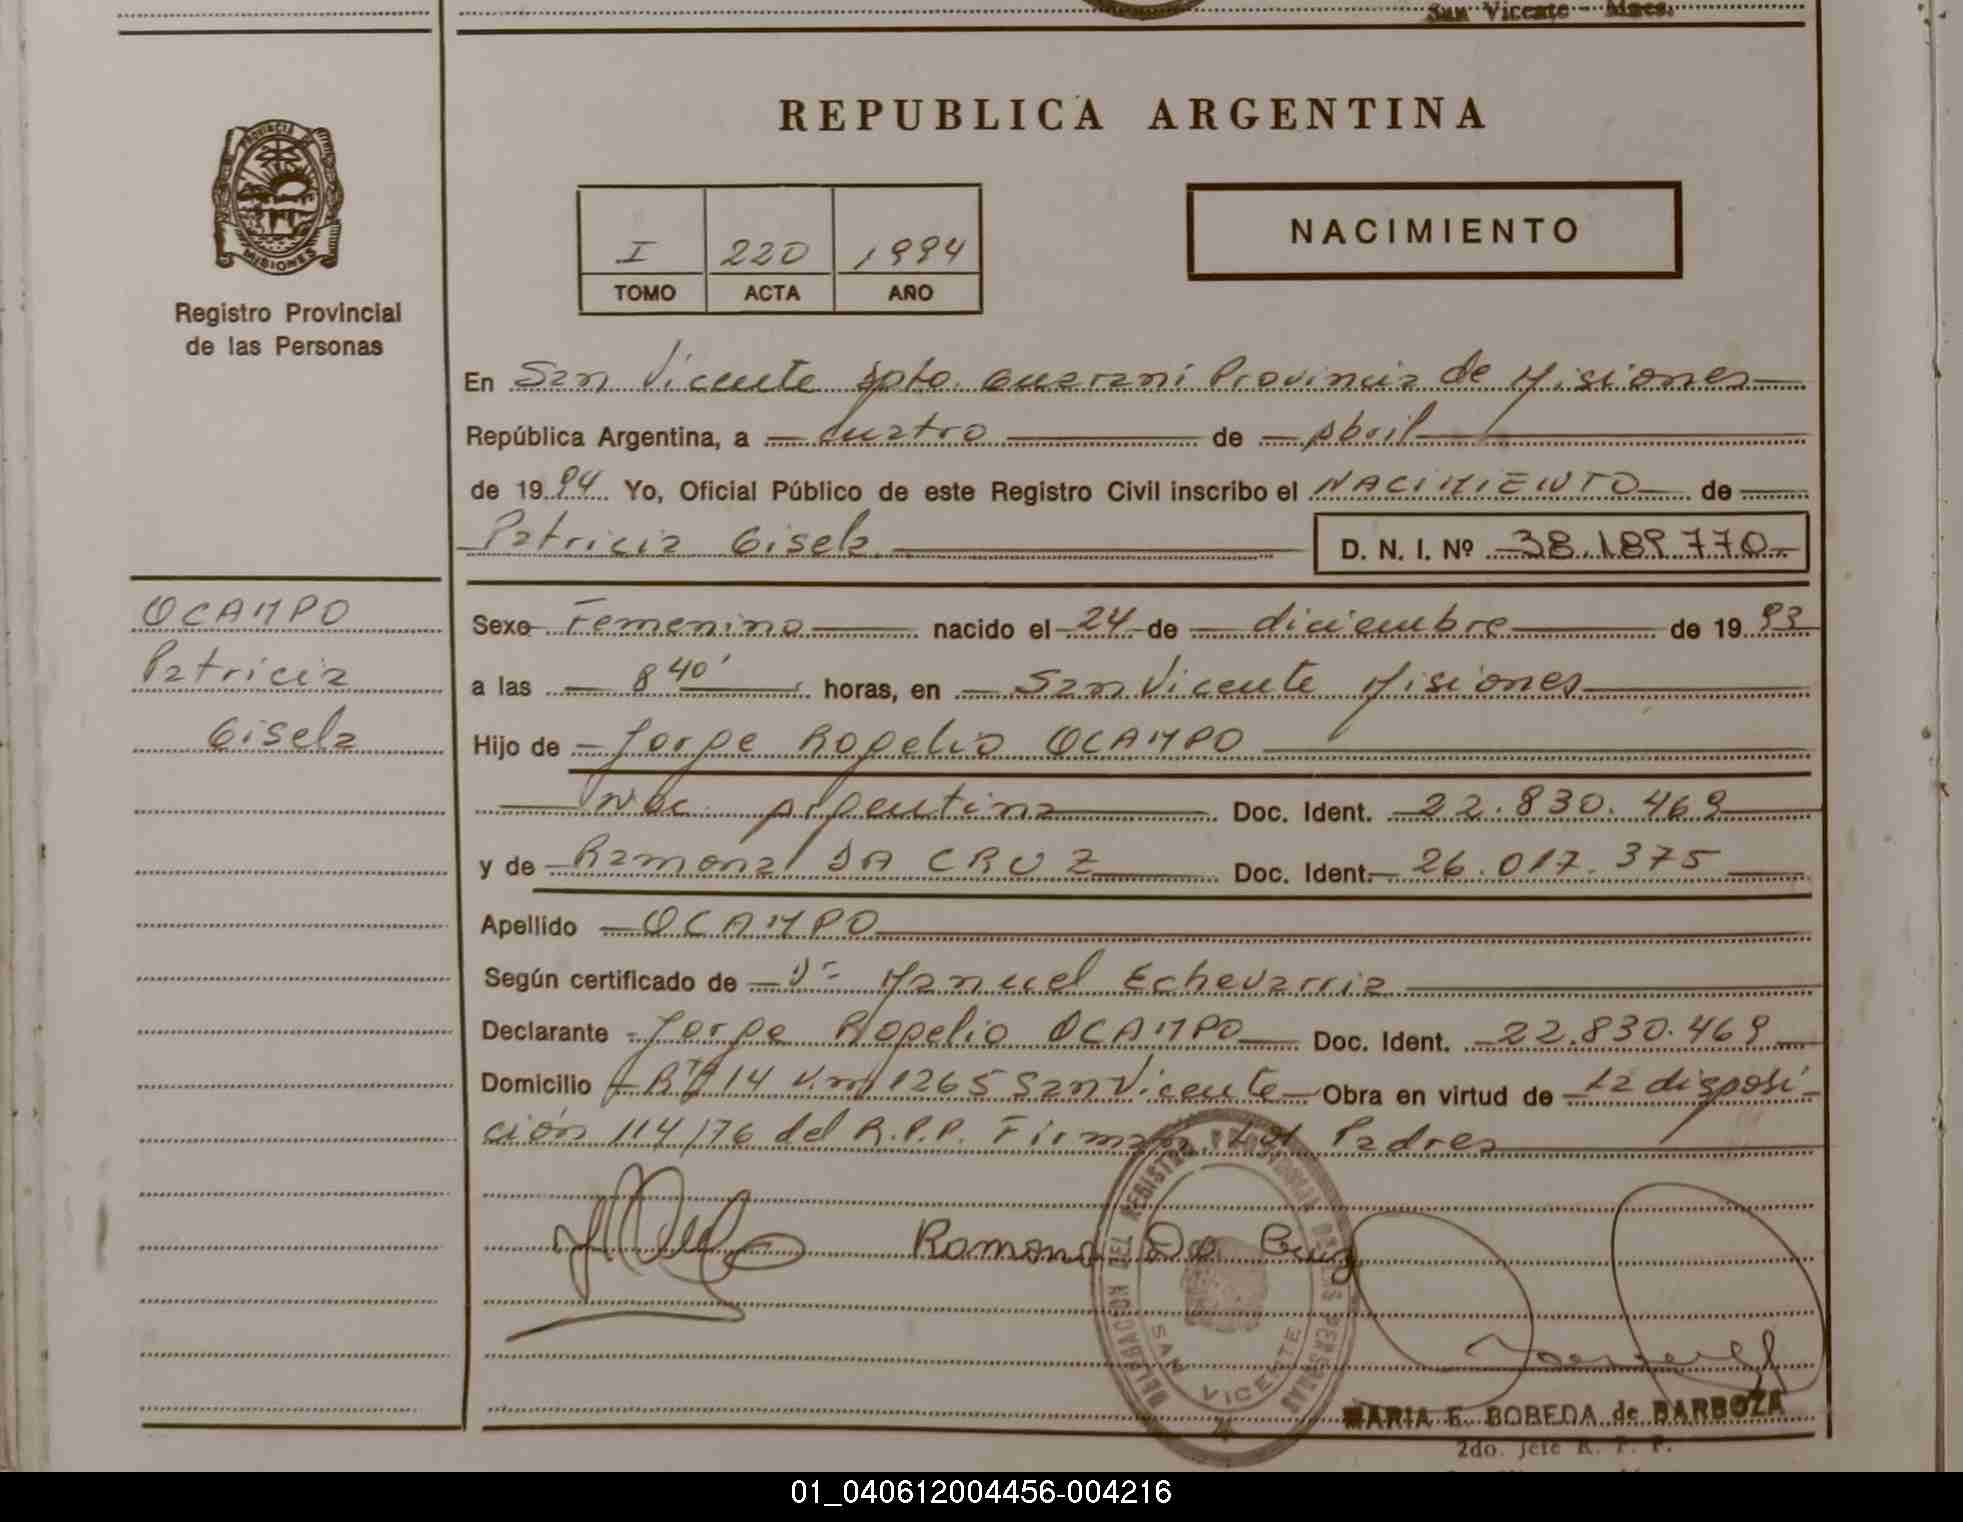 San Vicente - Mnes.
REPUBLICA ARGENTINA
PROVINCIA DE
MISIONES
Registro Provincial
de las Personas
I 220 1994
TOMO ACTA AÑO
NACIMIENTO
En San Vicente Dpto. Guarani Provincia de Misiones
República Argentina, a cuatro de Abril
de 1994 Yo, Oficial Público de este Registro Civil inscribo el NACIMIENTO de
Patricia Gisela D. N. I. Nº 38.189.770
OCAMPO
Patricia
Gisela
Sexo Femenino nacido el 24 de diciembre de 1993
a las 8 40' horas, en San Vicente Misiones
Hijo de Jorge Rogelio OCAMPO
Nac. Argentina Doc. Ident. 22.830.469
y de Ramona DA CRUZ Doc. Ident. 26.017.375
Apellido OCAMPO
Según certificado de Dr Manuel Echevarria
Declarante Jorge Rogelio OCAMPO Doc. Ident. 22.830.469
Domicilio Rta 14 Km 1265 San Vicente Obra en virtud de la disposi-
ción 114/76 del R.P.P. Firman Los Padres
Ramona Da Cruz
DELEGACION DEL REGISTRO PROVINCIAL DE LAS PERSONAS
SAN VICENTE
MARIA E. BOBEDA de BARBOZA
2do. Jefe R. P. P.
01_040612004456-004216